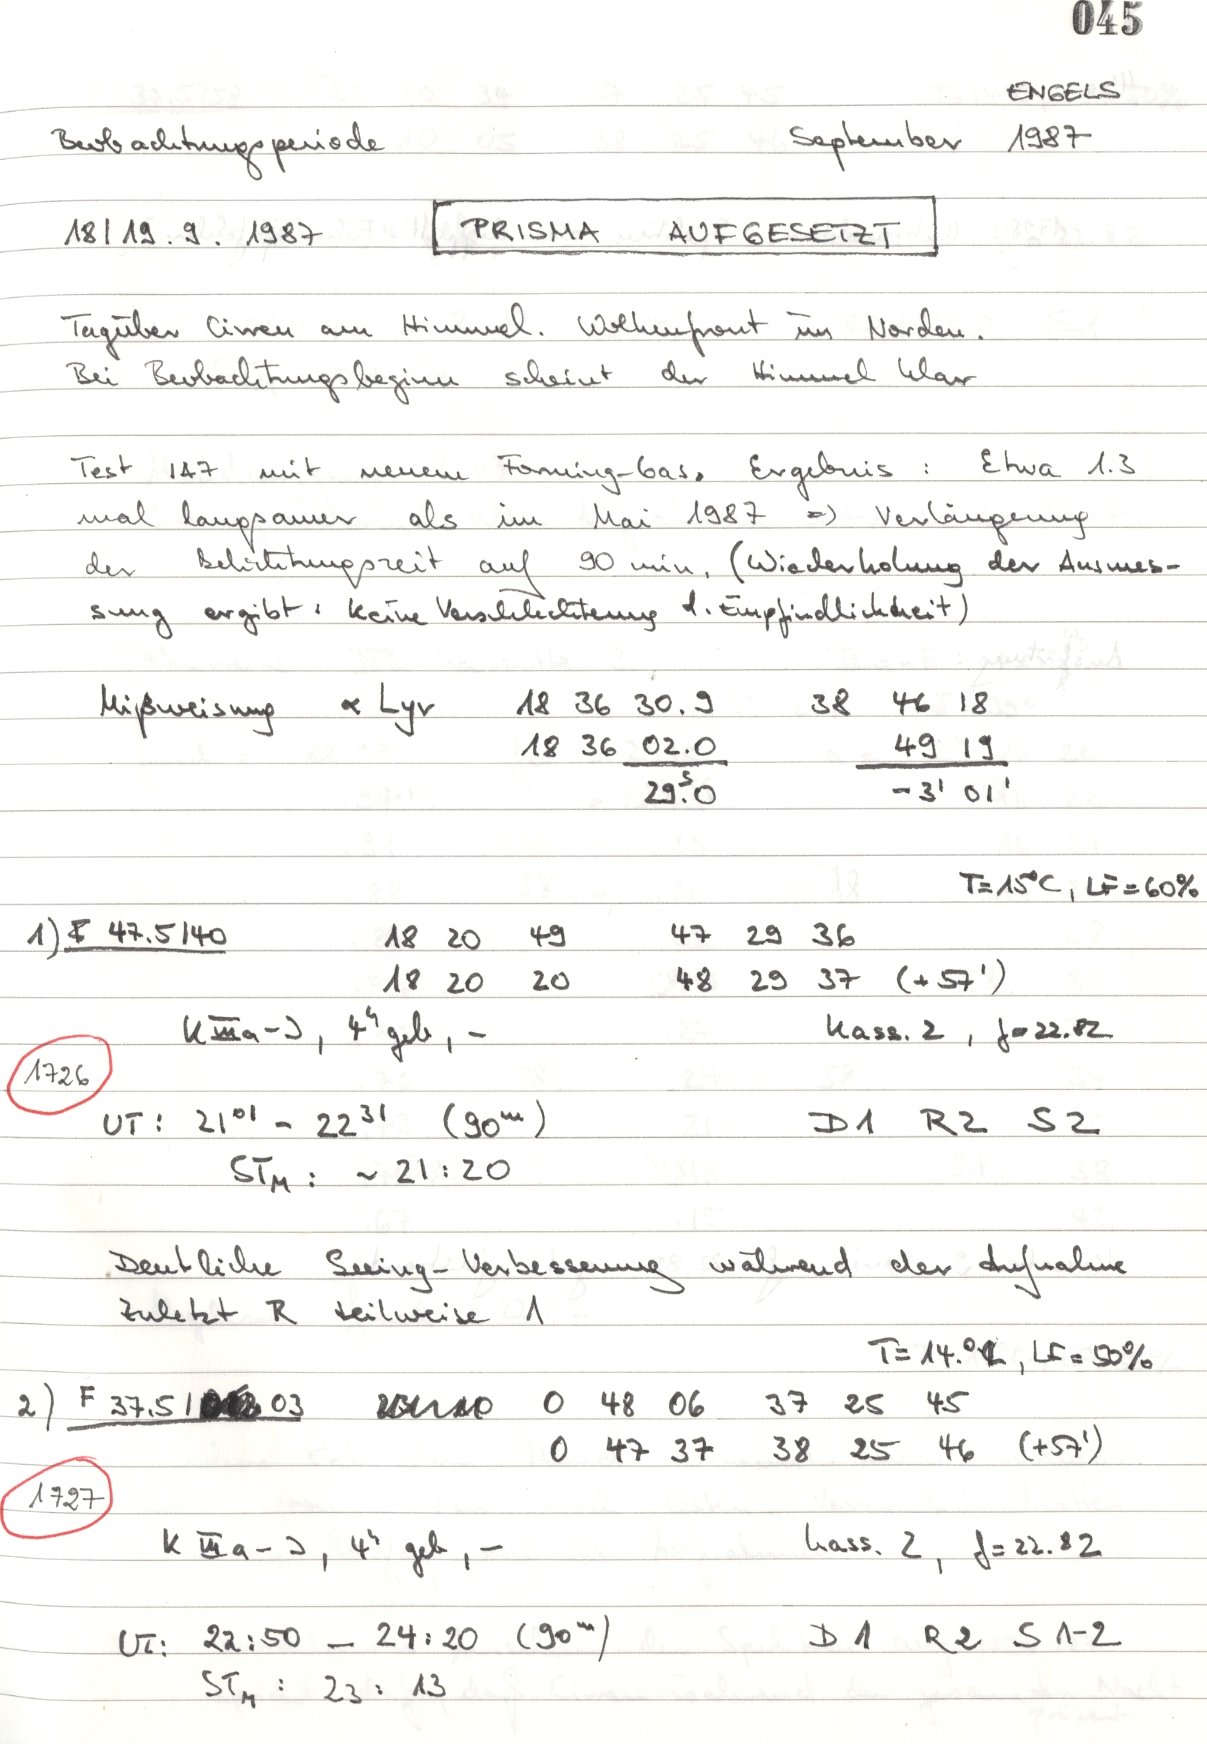 045
ENGELS
Beobachtungsperiode September 1987
18/19.9.1987 PRISMA AUFGESETZT
Tagüber Cirren am Himmel. Wolkenfront im Norden.
Bei Beobachtungsbeginn scheint der Himmel klar
Test 147 mit neuem Forming-Gas. Ergebnis: Etwa 1.3
mal langsamer als im Mai 1987 => Verlängerung
der Belichtungszeit auf 90 min. (Wiederholung der Ausmes-
sung ergibt: Keine Verschlechterung d. Empfindlichkeit)
Mißweisung α Lyr 18 36 30.9 38 46 18
18 36 02.0 49 19
29ˢ.0 -3' 01'
T=15°C, LF=60%
1) F 47.5/40 18 20 49 47 29 36
18 20 20 48 29 37 (+57')
K IIIa-J, 4ʰ geb, - Kass. 2, f=22.82
1726
UT: 21⁰¹ - 22³¹ (90ᵐ) D1 R2 S2
STM: ~ 21:20
Deutliche Seeing-Verbesserung während der Aufnahme
Zuletzt R teilweise 1
T=14.°C, LF=50%
2) F 37.5/ 03 0 48 06 37 25 45
0 47 37 38 25 46 (+57')
1727
K IIIa-J, 4ʰ geb, - Kass. 2, f=22.82
UT: 22:50 - 24:20 (90ᵐ) D1 R2 S1-2
STM: 23:13